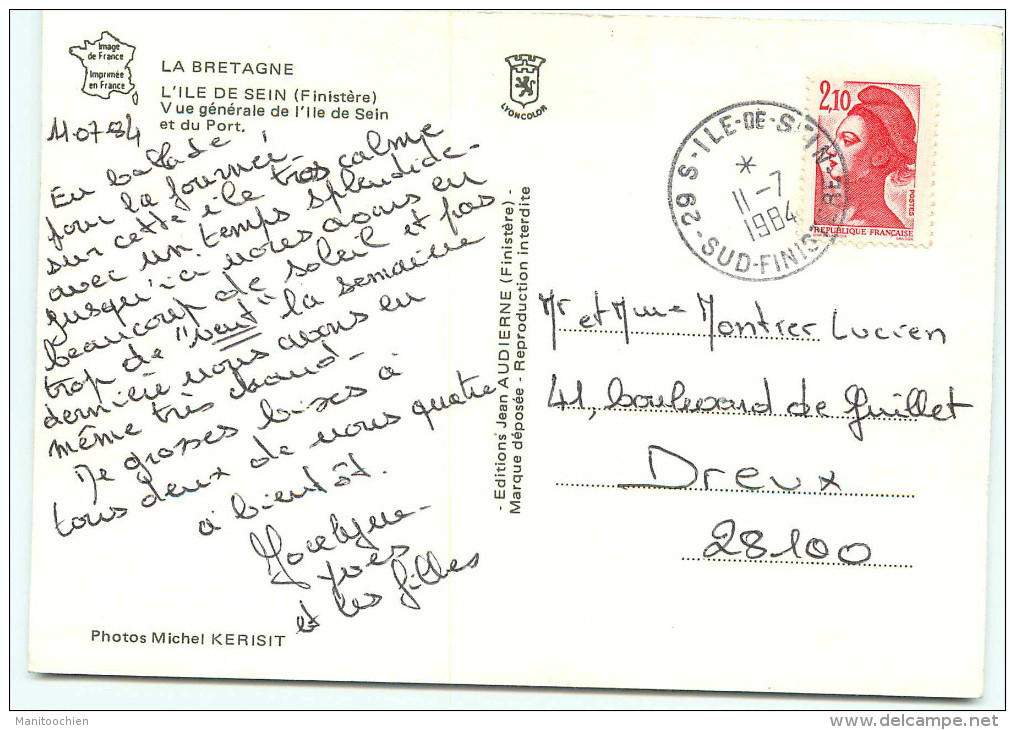 Image
de France
Imprimée
en France
LA BRETAGNE
L'ILE DE SEIN (Finistère)
Vue générale de l'Ile de Sein
et du Port.
11.07.84
En ballade
pour la journée
sur cette île très calme
avec un temps splendide -
jusqu'ici nous avons eu
beaucoup de soleil et pas
trop de "vent" la semaine
dernière nous avons eu
même très chaud -
De grosses bises à
tous deux de nous quatre
à bientôt.
Jocelyne -
Yves
et les filles
Photos Michel KERISIT
LYONCOLOR
- Editions Jean AUDIERNE (Finistère) -
Marque déposée - Reproduction interdite
29 S - ILE-DE-SEIN
*
11-7
1984
- SUD-FINIS
2,10
POSTES
REPUBLIQUE FRANÇAISE
Mr et Mme Montrer Lucien
41, boulevard de Guillet
Dreux
28100
Manitoochien
delcampe.net